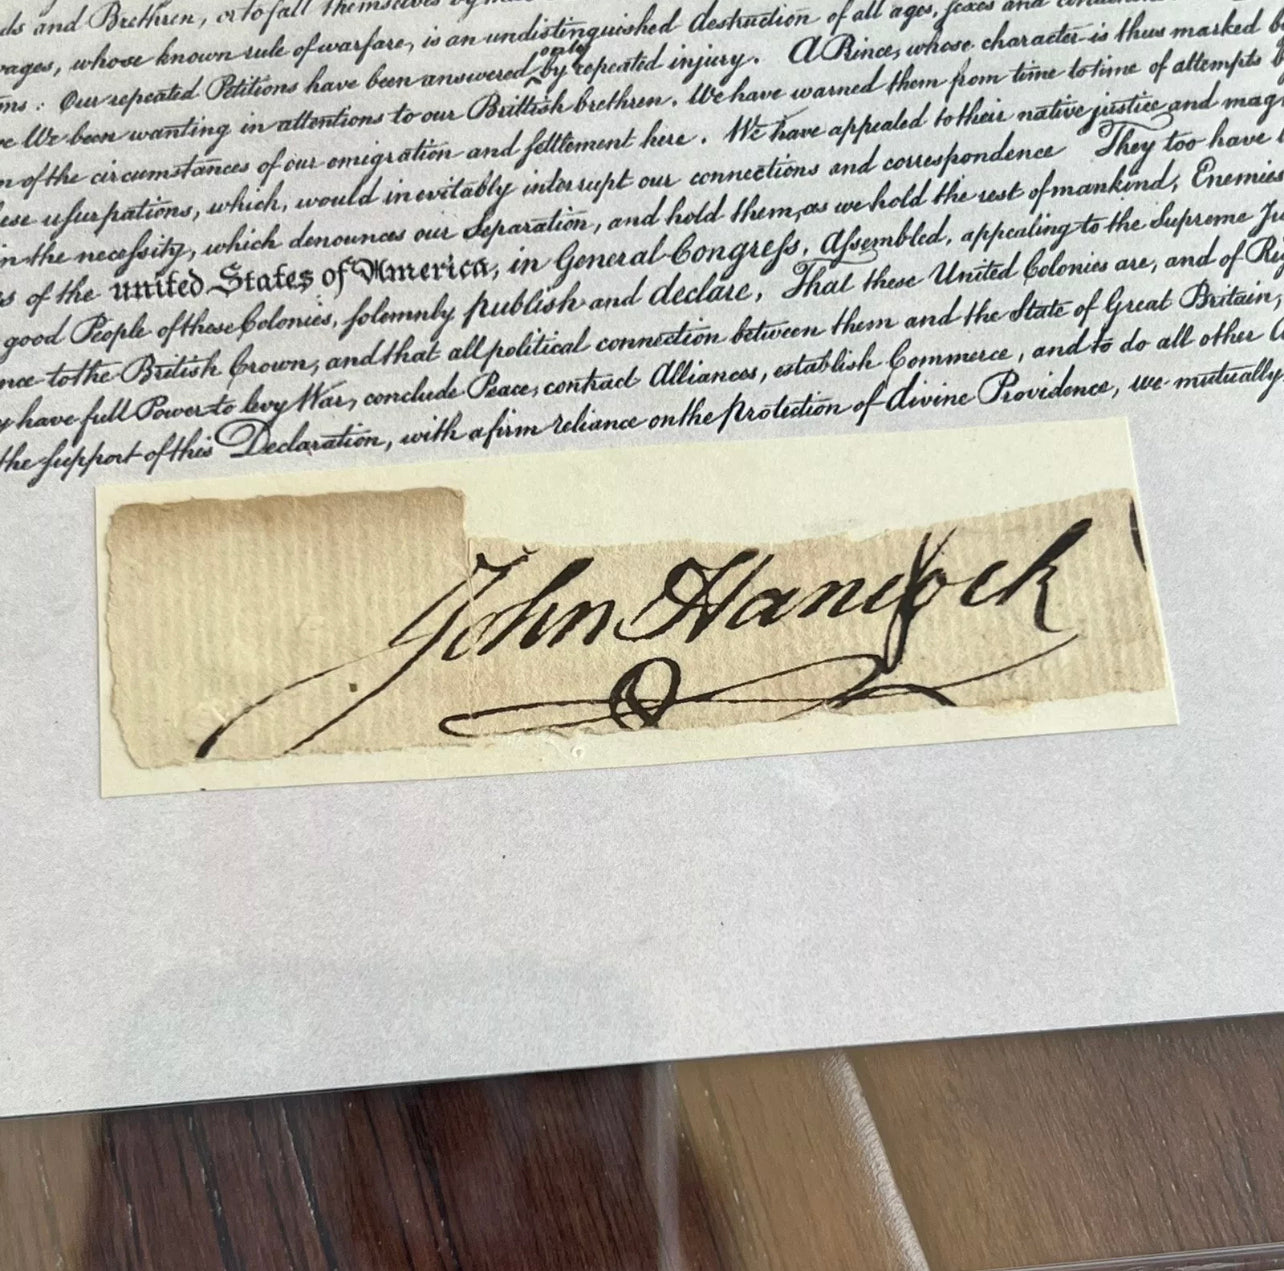 ds and Brethren, or to fall themselves by
vages, whose known rule of warfare, is an undistinguished destruction of all ages, sexes and
only
ms: Our repeated Petitions have been answered by repeated injury. A Prince, whose character is thus marked b
ve We been wanting in attentions to our Brittish brethren. We have warned them from time to time of attempts b
n of the circumstances of our emigration and settlement here. We have appealed to their native justice and mag
ese usurpations, which, would inevitably interrupt our connections and correspondence They too have
in the necessity, which denounces our Separation, and hold them, as we hold the rest of mankind, Enemies
s of the united States of America, in General Congress, Assembled, appealing to the Supreme Ju
good People of these Colonies, solemnly publish and declare, That these United Colonies are, and of Rig
nce to the British Crown, and that all political connection between them and the State of Great Britain,
y have full Power to levy War, conclude Peace, contract Alliances, establish Commerce, and to do all other A
the support of this Declaration, with a firm reliance on the protection of divine Providence, we mutually
John Hancock